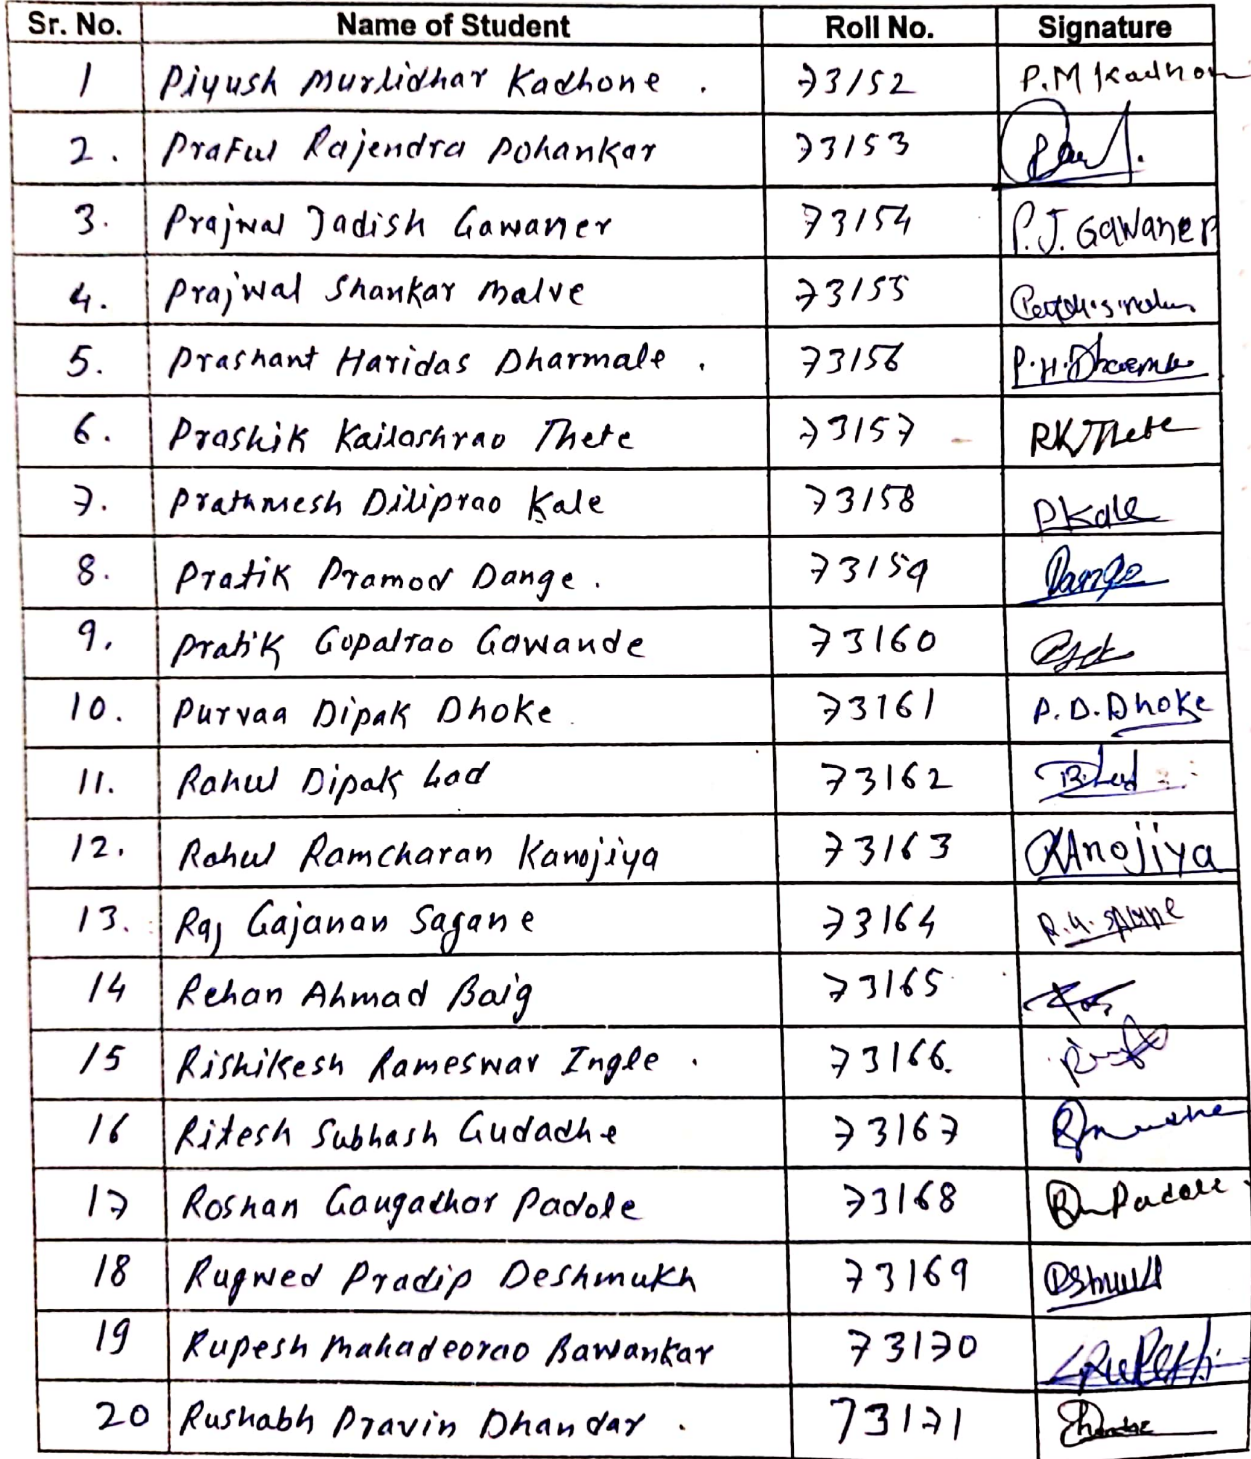 Sr. No. Name of Student Roll No. Signature
1 Piyush Murlidhar Kadhone . 73152 P.M Kadhon
2. Praful Rajendra Pohankar 73153
3. Prajwal Jadish Gawaner 73154 P.J. Gawaner
4. Prajwal Shankar Malve 73155
5. Prashant Haridas Dharmale . 73156 P.H.Dharmale
6. Prashik Kailashrao Thete 73157 RKThete
7. Prathmesh Diliprao Kale 73158 PKale
8. Pratik Pramod Dange . 73159 Dange
9. Pratik Gopalrao Gawande 73160
10. Purvaa Dipak Dhoke 73161 P.D.Dhoke
11. Rahul Dipak Lad 73162
12. Rahul Ramcharan Kanojiya 73163 Kanojiya
13. Raj Gajanan Sagane 73164
14 Rehan Ahmad Baig 73165
15 Rishikesh Rameswar Ingle . 73166.
16 Ritesh Subhash Gudadhe 73167
17 Roshan Gaugadhar Padole 73168 Padole
18 Rugwed Pradip Deshmukh 73169
19 Rupesh Mahadeorao Bawankar 73170
20 Rushabh Pravin Dhandar . 73171